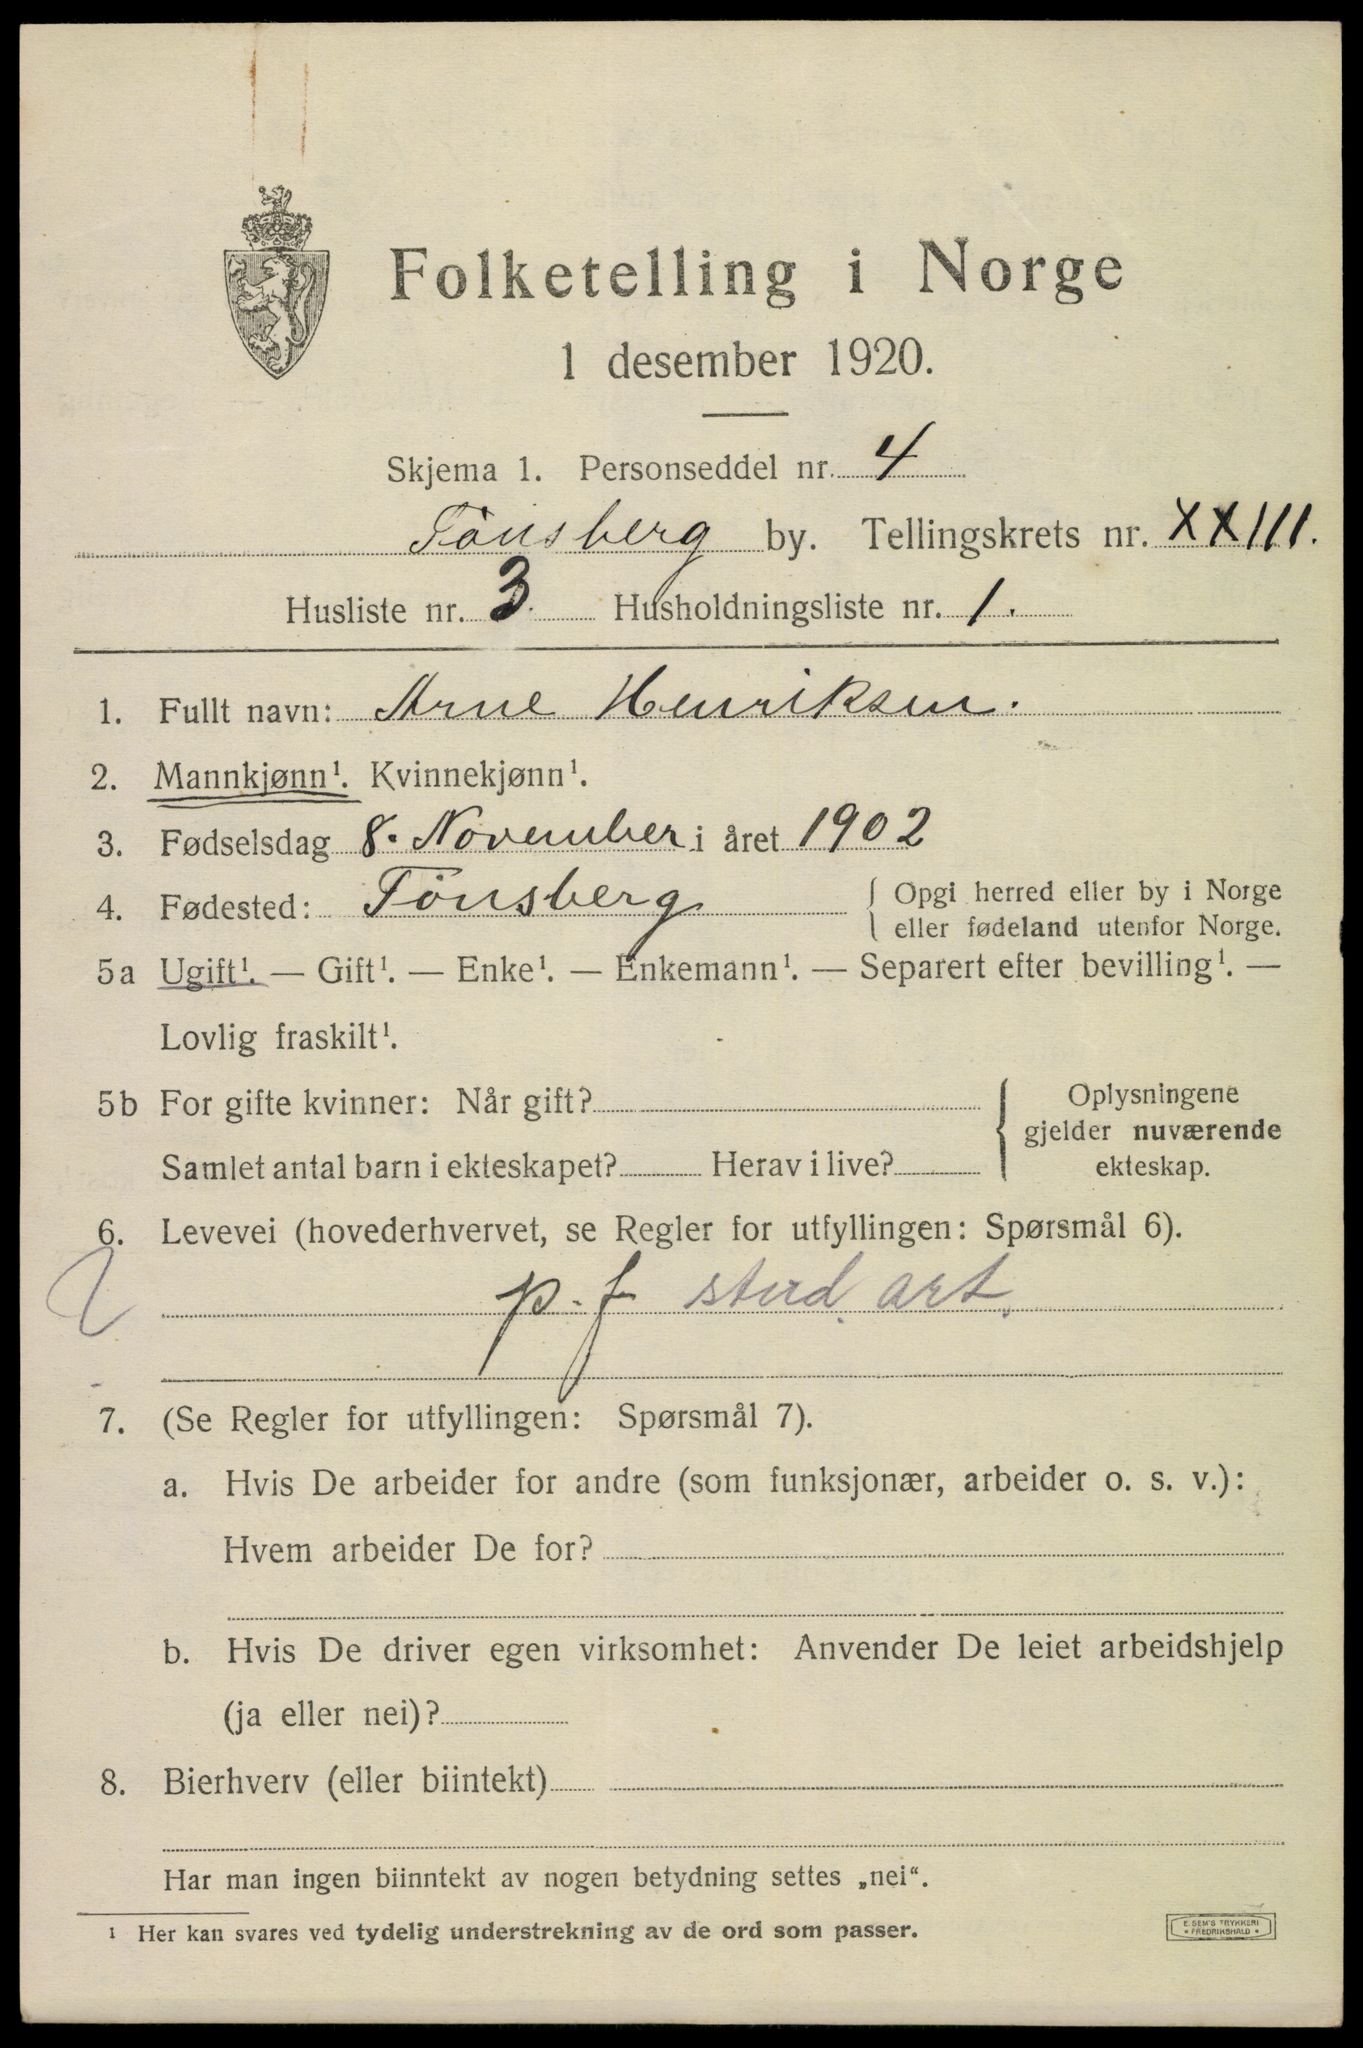 Folketelling i Norge
1 desember 1920.
Skjema 1. Personseddel nr. 4
Tönsberg by. Tellingskrets nr. XXIII.
Husliste nr. 3. Husholdningsliste nr. 1.
1. Fullt navn: Arne Henriksen.
2. Mannkjønn¹. Kvinnekjønn¹.
3. Fødselsdag 8. November i året 1902
4. Fødested: Tönsberg { Opgi herred eller by i Norge
eller fødeland utenfor Norge.
5a Ugift¹. — Gift¹. — Enke¹. — Enkemann¹. — Separert efter bevilling¹. —
Lovlig fraskilt¹.
5b For gifte kvinner: Når gift?
Samlet antal barn i ekteskapet? Herav i live?
{ Oplysningene
gjelder nuværende
ekteskap.
6. Levevei (hovederhvervet, se Regler for utfyllingen: Spørsmål 6).
p. f stud. art.
7. (Se Regler for utfyllingen: Spørsmål 7).
a. Hvis De arbeider for andre (som funksjonær, arbeider o. s. v.):
Hvem arbeider De for?
b. Hvis De driver egen virksomhet: Anvender De leiet arbeidshjelp
(ja eller nei)?
8. Bierhverv (eller biintekt)
Har man ingen biinntekt av nogen betydning settes „nei“.
¹ Her kan svares ved tydelig understrekning av de ord som passer.
E. SEM'S TRYKKERI
* FREDRIKSHALD *